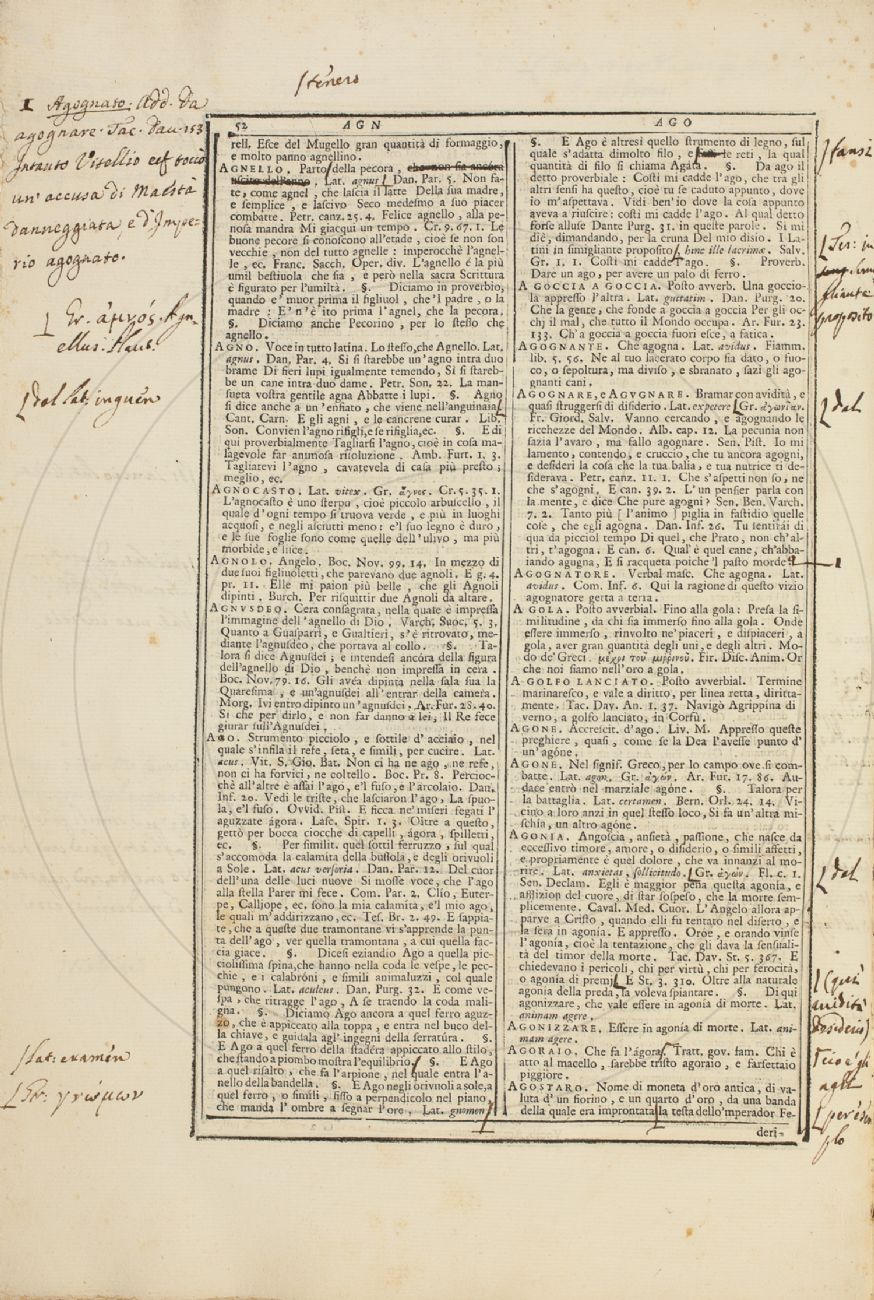 tenero
1 Agognato. Add. Da
agognare. Tac. Dav. 153
Intanto Vitellio
un' accusa di Maestà
danneggiata, e d'Impe-
rio agognato.
Gr. Agn
ellus.
del lat. inguén
lat. examén
Gr. γνώμων
52 AGN
rell. Esce del Mugello gran quantità di formaggio,
e molto panno agnellino.
AGNELLO. Parto della pecora, che non sia ancora
uscito dell'anno. Lat. agnus. Dan. Par. 5. Non fa-
te, come agnel, che lascia il latte Della sua madre,
e semplice, e lascivo Seco medesmo a suo piacer
combatte. Petr. canz. 25. 4. Felice agnello, alla pe-
nosa mandra Mi giacqui un tempo. Cr. 9. 67. 1. Le
buone pecore si conoscono all'etade, cioè se non son
vecchie, non del tutto agnelle: imperocchè l'agnel-
le, ec. Franc. Sacch. Oper. div. L'agnello é la più
umil bestiuola che sia, e però nella sacra Scrittura
è figurato per l'umiltà. §. Diciamo in proverbio,
quando e' muor prima il figliuol, che'l padre, o la
madre: E' n'è ito prima l'agnel, che la pecora.
§. Diciamo anche Pecorino, per lo stesso che
agnello.
AGNO. Voce in tutto latina. Lo stesso, che Agnello. Lat.
agnus. Dan. Par. 4. Si si starebbe un'agno intra duo
brame Di fieri lupi igualmente temendo, Sí si stareb-
be un cane intra duo dame. Petr. Son. 22. La man-
sueta vostra gentile agna Abbatte i lupi. §. Agno
si dice anche a un'enfiato, che viene nell'anguinaia
Cant. Carn. E gli agni, e le cancrene curar. Lib.
Son. Convien l'agno risigli, e se risiglia, ec. §. E di
qui proverbialmente Tagliarsi l'agno, cioè in cosa ma-
lagevole far animosa risoluzione. Amb. Furt. 1. 3.
Tagliatevi l'agno, cavatevela di casa più presto;
meglio, ec.
AGNOCASTO. Lat. vitex. Gr. ἄγνος. Cr. 5. 35. 1.
L'agnocasto è uno sterpo, cioè piccolo arbuscello, il
quale d'ogni tempo si truova verde, e più in luoghi
acquosi, e negli asciutti meno: e'l suo legno è duro,
e le sue foglie sono come quelle dell'ulivo, ma più
morbide, e liice.
AGNOLO. Angelo. Boc. Nov. 99. 14. In mezzo di
due suoi figliuoletti, che parevano due agnoli. E g. 4.
pr. 11. Elle mi paion più belle, che gli Agnoli
dipinti. Burch. Per risquittir due Agnoli da altare.
AGNUSDEO. Cera consagrata, nella quale è impressa
l'immagine dell'agnello di Dio. Varch. Suoc. 5. 3.
Quanto a Guasparri, e Gualtieri, s'è ritrovato, me-
diante l'agnusdeo, che portava al collo. §. Ta-
lora si dice Agnusdei; e intendesi ancóra della figura
dell'agnello di Dio, benchè non impressa in cera.
Boc. Nov. 79. 16. Gli avéa dipinta nella sala sua la
Quaresima, e un'agnusdei all'entrar della camera.
Morg. Ivi entro dipinto un'agnusdei. Ar. Fur. 28. 40.
Si che per dirlo, e non far danno a lei, Il Re fece
giurar sull'Agnusdei.
AGO. Strumento picciolo, e sottile d'acciaio, nel
quale s'infila il refe, seta, e simili, per cucire. Lat.
acus. Vit. S. Gio. Bat. Non ci ha ne ago, ne refe,
non ci ha forvici, ne coltello. Boc. Pr. 8. Percioc-
chè all'altre è assai l'ago, e'l fuso, e l'arcolaio. Dan.
Inf. 20. Vedi le triste, che lasciaron l'ago, La spuo-
la, e'l fuso. Ovvid. Pist. E ficca ne' miseri fegati l'
aguzzate ágora. Lasc. Spir. 1. 3. Oltre a questo,
gettò per bocca ciocche di capelli, ágora, spilletti,
ec. §. Per similit. quel sottil ferruzzo, sul qual
s'accomoda la calamita della bussola, e degli orivuoli
a Sole. Lat. acus versoria. Dan. Par. 12. Del cuor
dell'una delle luci nuove Si mosse voce, che l'ago
alla stella Parer mi fece. Com. Par. 2. Clío, Euter-
pe, Calliope, ec. sono la mia calamita, e'l mio ago,
le quali m'addirizzano, ec. Tes. Br. 2. 49. E sappia-
te, che a queste due tramontane vi s'apprende la pun-
ta dell'ago, ver quella tramontana, a cui quella fac-
cia giace. §. Dicesi eziandio Ago a quella pic-
ciolissima spina, che hanno nella coda le vespe, le pec-
chie, e i calabróni, e simili animaluzzi, col quale
pungono. Lat. aculeus. Dan. Purg. 32. E come ve-
spa, che ritragge l'ago, A se traendo la coda mali-
gna. §. Diciamo Ago ancora a quel ferro aguz-
zo, che è appiccato alla toppa, e entra nel buco del-
la chiave, e guidala agl'ingegni della serratura. §.
E Ago a quel ferro della stadéra appiccato allo stilo,
che stando a piombo mostra l'equilibrio. §. E Ago
a quel risalto, che fa l'arpione, nel quale entra l'a-
nello della bandella. §. E Ago negli orivuoli a sole, a
quel ferro, o simili, fisso a perpendicolo nel piano,
che manda l'ombre a segnar l'ore. Lat. gnomon.
AGO
§. E Ago è altresì quello strumento di legno, sul
quale s'adatta dimolto filo, e fassi le reti, la qual
quantità di filo si chiama Agata. §. Da ago il
detto proverbiale: Costì mi cadde l'ago, che tra gli
altri sensi ha questo, cioè tu se caduto appunto, dove
io m'aspettava. Vidi ben'io dove la cosa appunto
aveva a riuscire: costì mi cadde l'ago. Al qual detto
forse alluse Dante Purg. 31. in queste parole. Sì mi
diè, dimandando, per la cruna Del mio disio. I La-
tini in simigliante proposito hinc ille lacrimæ. Salv.
Gr. 1. 1. Costì mi cadde l'ago. §. Proverb.
Dare un ago, per avere un palo di ferro.
A GOCCIA A GOCCIA. Posto avverb. Una goccio-
la appresso l'altra. Lat. guttatim. Dan. Purg. 20.
Che la gente, che fonde a goccia a goccia Per gli oc-
chj il mal, che tutto il Mondo occupa. Ar. Fur. 23.
133. Ch'a goccia a goccia fuori esce, a fatica.
AGOGNANTE. Che agogna. Lat. avidus. Fiamm.
lib. 5. 56. Ne al tuo lacerato corpo sia dato, o fuo-
co, o sepoltura, ma diviso, e sbranato, sazi gli ago-
gnanti cani.
AGOGNARE, e AGUGNARE. Bramar con avidità, e
quasi struggersi di disiderio. Lat. expetere Gr. ἀγωνιᾶν.
Fr. Giord. Salv. Vanno cercando, e agognando le
ricchezze del Mondo. Alb. cap. 12. La pecunia non
sazia l'avaro, ma fallo agognare. Sen. Pist. Io mi
lamento, contendo, e cruccio, che tu ancora agogni,
e desideri la cosa che la tua balia, e tua nutrice ti de-
siderava. Petr. canz. 11. 1. Che s'aspetti non so, ne
che s'agogni. E can. 39. 2. L'un pensier parla con
la mente, e dice Che pure agogni? Sen. Ben. Varch.
7. 2. Tanto più [l'animo] piglia in fastidio quelle
cose, che egli agogna. Dan. Inf. 26. Tu sentirái di
qua da picciol tempo Di quel, che Prato, non ch'al-
tri, t'agogna. E can. 6. Qual è quel cane, ch'abba-
iando agugna, E si racqueta poiche 'l pasto morde.
AGOGNATORE. Verbal masc. Che agogna. Lat.
avidus. Com. Inf. 6. Qui la ragione di questo vizio
agognatore getta a terra.
A GOLA. Posto avverbial. Fino alla gola: Presa la si-
militudine, da chi sia immerso fino alla gola. Onde
essere immerso, rinvolto ne' piaceri, e dispiaceri, a
gola, aver gran quantità degli uni, e degli altri. Mo-
do de' Greci. Fir. Disc. Anim. Or
che noi siamo nell'oro a gola.
A GOLFO LANCIATO. Posto avverbial. Termine
marinaresco, e vale a diritto, per linea retta, diritta-
mente. Tac. Dav. An. 1. 37. Navigò Agrippina di
verno, a golfo lanciato, in Corfù.
AGONE. Accrescit. d'ago. Liv. M. Appresso queste
preghiere, quasi, come se la Dea l'avesse punto d'
un'agóne.
AGONE. Nel signif. Greco, per lo campo ove si com-
batte. Lat. agon. Gr. ἀγών. Ar. Fur. 17. 86. Au-
dace entrò nel marziale agóne. §. Talora per
la battaglia. Lat. certamen. Bern. Orl. 24. 14. Vi-
cino a loro anzi in quel stesso loco, Si fa un'altra mi-
schia, un altro agóne.
AGONIA. Angoscia, ansietà, passione, che nasce da
eccessivo timore, amore, o disiderio, o simili affetti,
e propriamente è quel dolore, che va innanzi al mo-
rire. Lat. anxietas, sollicitudo. Gr. ἀγών. Fl. c. 1.
Sen. Declam. Egli è maggior pena questa agonia, e
afflizion del cuore, di star sospeso, che la morte sem-
plicemente. Caval. Med. Cuor. L'Angelo allora ap-
parve a Cristo, quando elli fu tentato nel diserto, e
la sera in agonía. E appresso. Oróe, e orando vinse
l'agonía, cioè la tentazione, che gli dava la sensuali-
tà del timor della morte. Tac. Dav. St. 5. 367. E
chiedevano i pericoli, chi per virtù, chi per ferocità,
o agonía di premj. E St. 3. 310. Oltre alla naturale
agonía della preda, la voleva spiantare. §. Di qui
agonizzare, che vale essere in agonía di morte. Lat.
animam agere.
AGONIZZARE. Essere in agonía di morte. Lat. ani-
mam agere.
AGORAIO. Che fa l'ágora. Tratt. gov. fam. Chi è
atto al macello, sarebbe tristo agoraio, e farsettaio
piggiore.
AGOSTARO. Nome di moneta d'oro antica, di va-
luta d'un fiorino, e un quarto d'oro, da una banda
della quale era improntata la testa dello'mperador Fe-
deri-
fansi
Ter: in
proposito
dal
1
dal
(qui
avidità
desiderio)
cioè gli
aghi
per ésem
plo